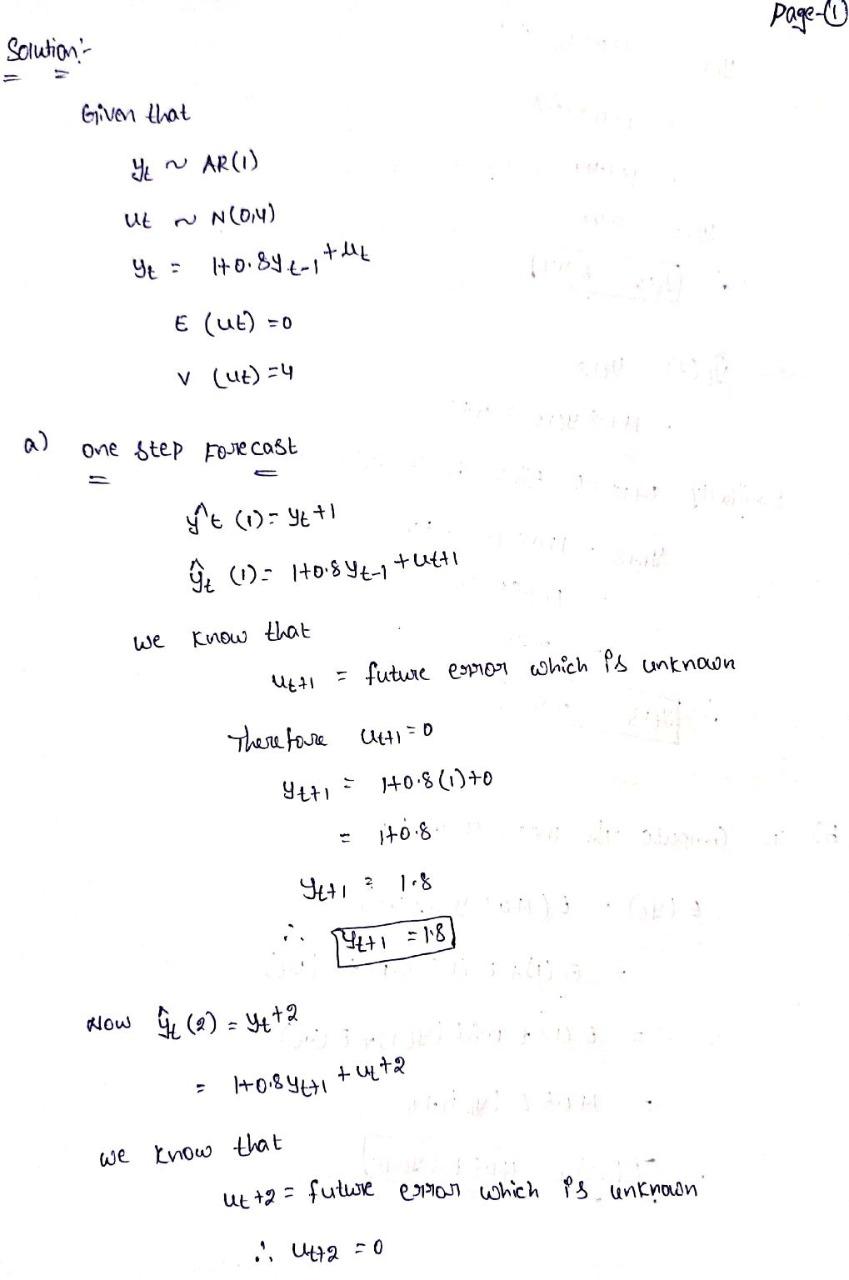 Page-(1)
Solution:-
Given that
yt ~ AR(1)
ut ~ N(0,4)
yt = 1+0.8yt-1+ut
E (ut) =0
V (ut) =4
a) one step Forecast
ŷt (1) = yt+1
ŷt (1) = 1+0.8yt-1+ut+1
we know that
ut+1 = future error which is unknown
Therefore ut+1=0
yt+1 = 1+0.8(1)+0
= 1+0.8
yt+1 = 1.8
∴ yt+1 = 1.8
Now ŷt (2) = yt+2
= 1+0.8yt+1 + ut+2
we know that
ut+2 = future error which is unknown
∴ ut+2 = 0